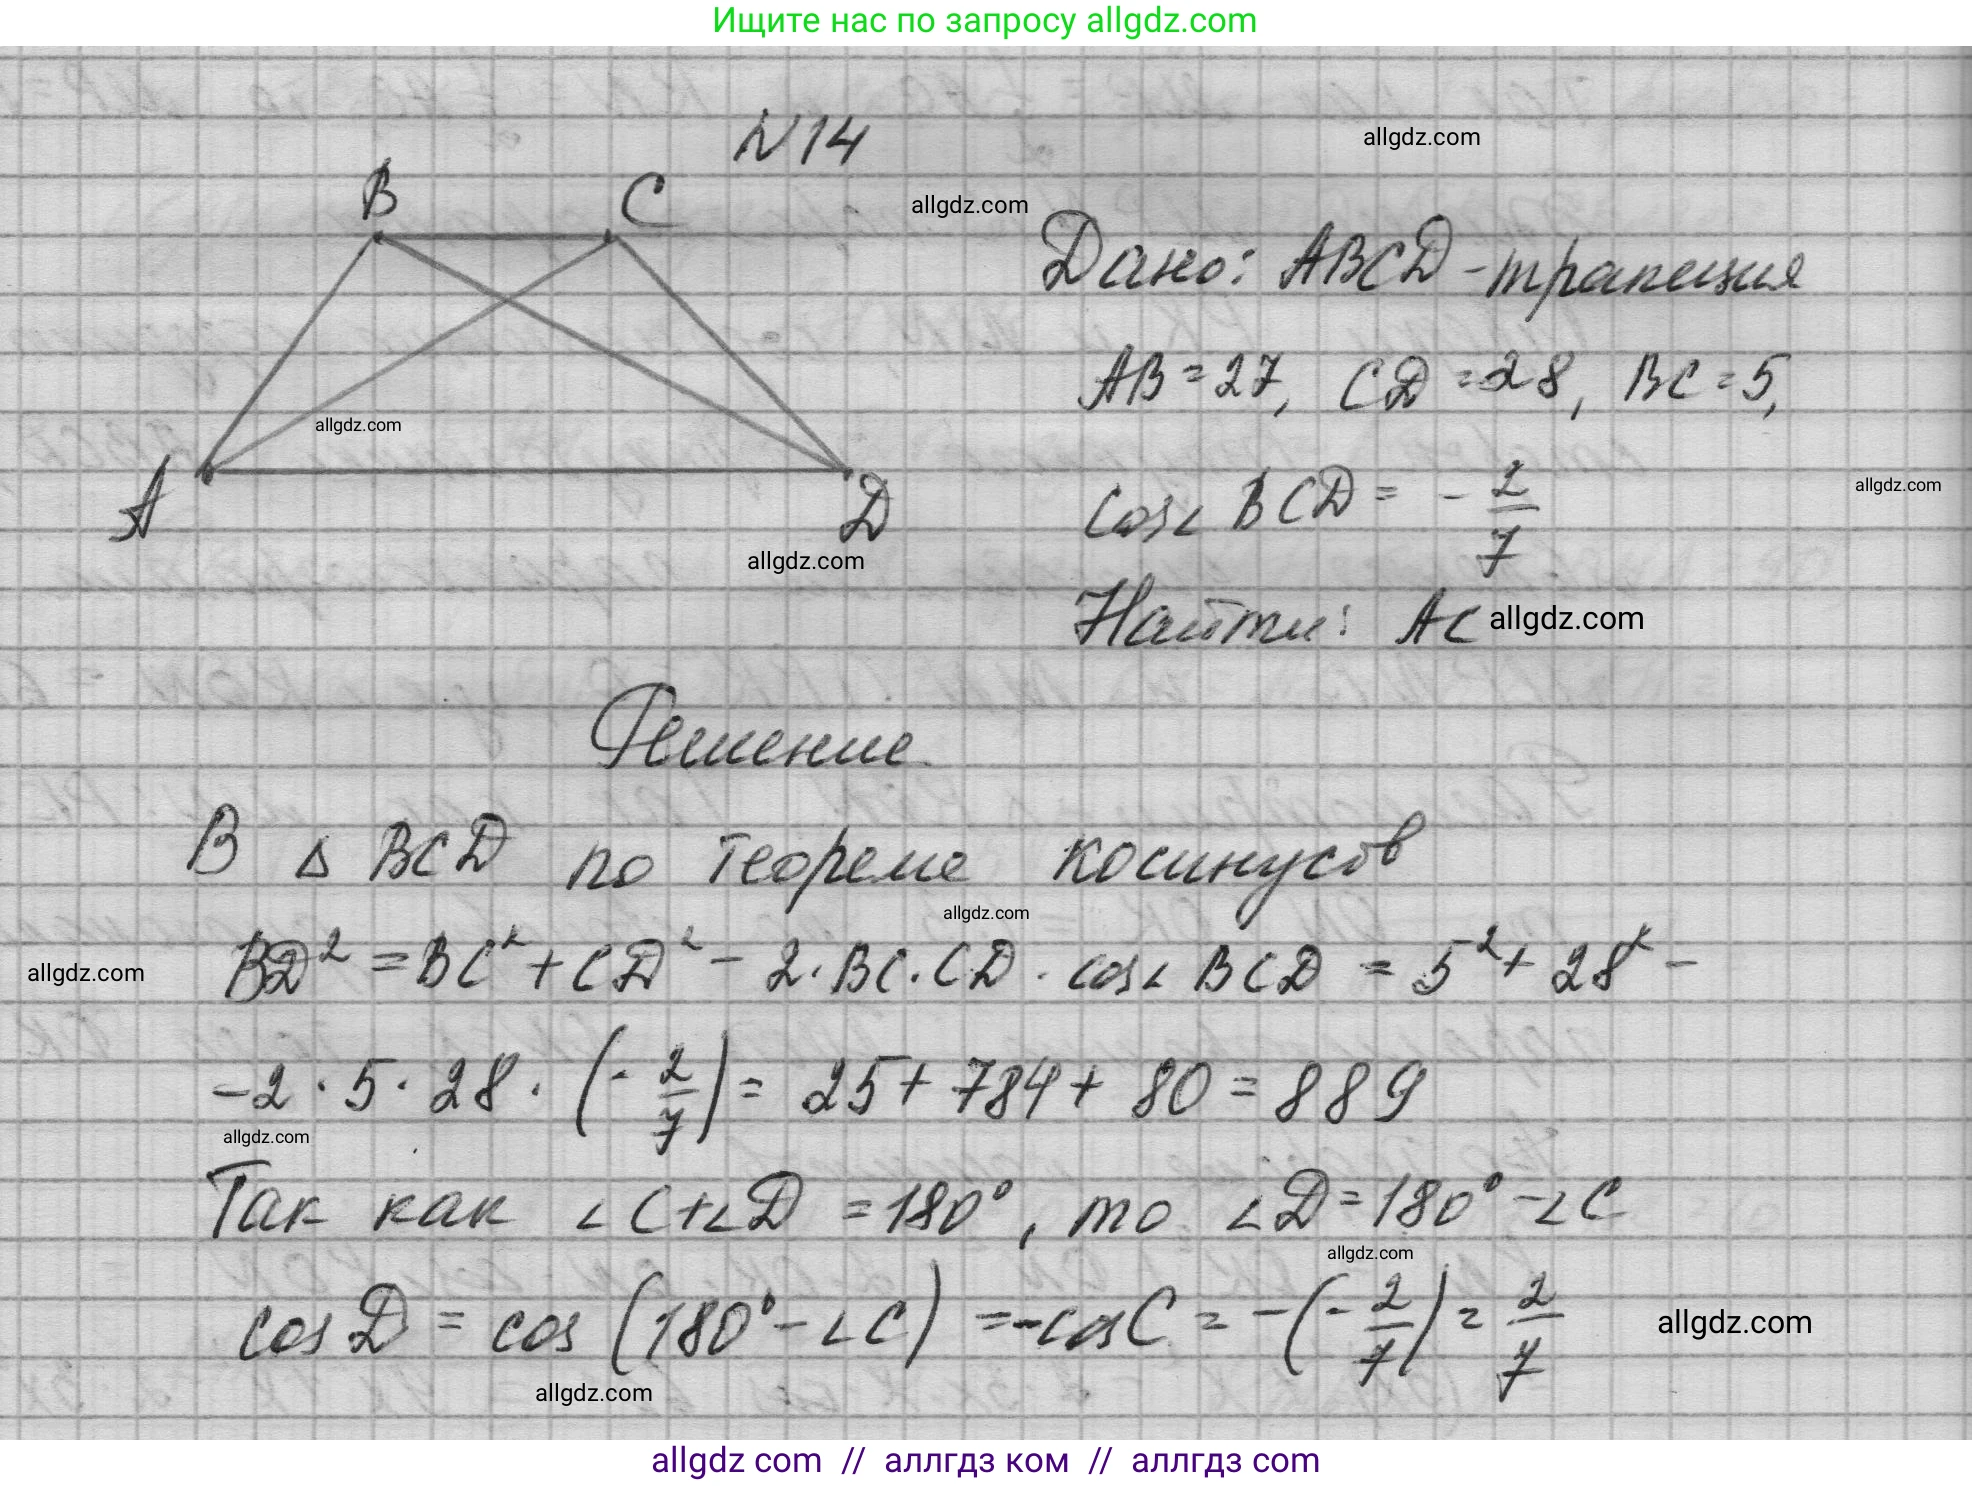 Ищите нас по запросу allgdz.com
N14
allgdz.com
B
C
allgdz.com
Дано: ABCD - трапеция
AB = 27, CD = 28, BC = 5,
allgdz.com
A
D
cos∠BCD = - 2/7
allgdz.com
allgdz.com
Найти: AC allgdz.com
Решение
В Δ BCD по теореме косинусов
allgdz.com
BD² = BC² + CD² - 2·BC·CD·cos∠BCD = 5² + 28² -
allgdz.com
-2·5·28·(-2/7) = 25 + 784 + 80 = 889
allgdz.com
Так как ∠C+∠D = 180°, то ∠D = 180° - ∠C
allgdz.com
cos D = cos (180° - ∠C) = -cos C = -(-2/7) = 2/7
allgdz.com
allgdz.com
allgdz com // аллгдз ком // аллгдз com